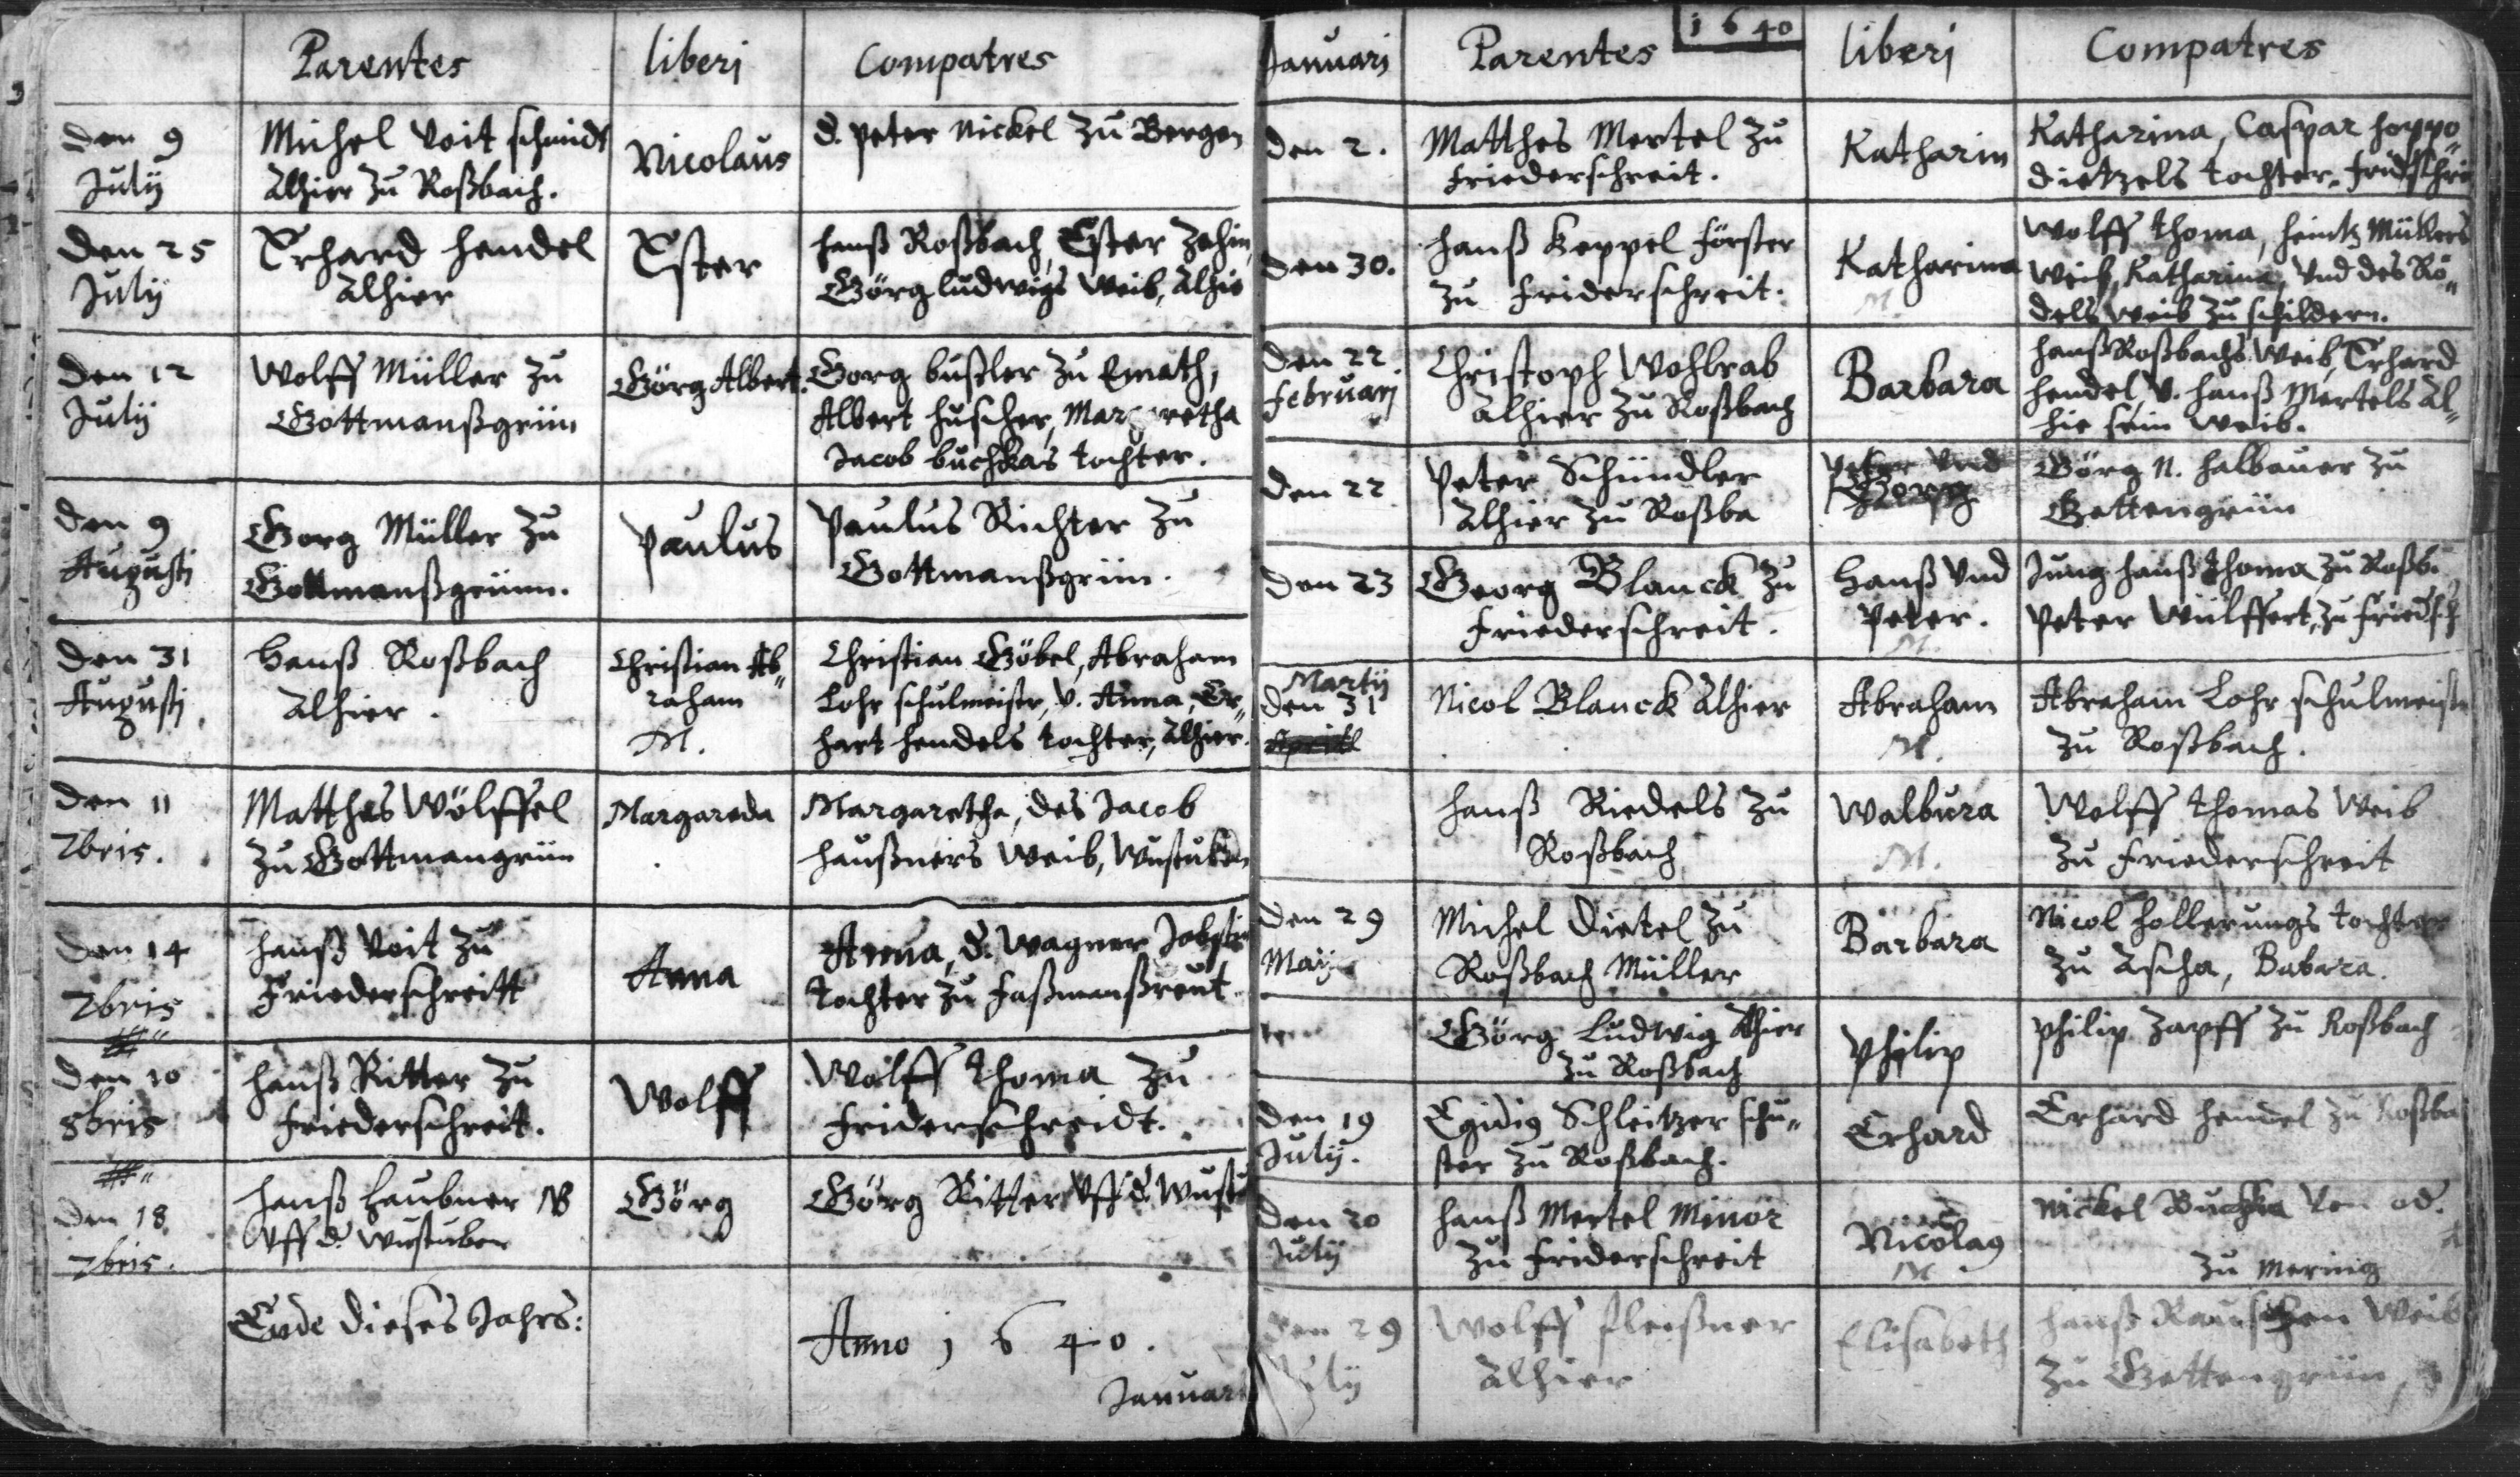 Parentes liberj Compatres
den 9 Julij
Michel Voit schmidt
Alhier zu Roßbach.
Nicolaus
d. Peter Nickel zu Bergen
den 25 Julij
Erhard Hendel
Alhier
Ester
Hanß Roßbach, Ester
Görg Ludwigs Weib, Alhie
den 12 Julij
Wolff Müller zu
Gottmanßgrün
Görg Albert.
Gorg bußler zu
Albert Huscher, Margretha
Jacob buchkas tochter.
den 9 Augustj
Gorg Müller zu
Gottmanßgrünn.
Paulus
Paulus Richter zu
Gottmanßgrün.
den 31 Augustj
Hanß Roßbach
Alhier.
Christian Ab„
raham
M.
Christian Göbel, Abraham
Lohr schulmeistr, v. Anna, Er„
hart Hendels tochter, Alhier.
den 11 7bris.
Matthes Wölffel
zu Gottmangrün
Margareda
Margaretha, des Jacob
Haußners Weib, Wustuben
den 14 7bris
Hanß Voit zu
Friederschreitt
Anna
Anna, d. Wagner
tochter zu Faßmanßreut
den 10 8bris
Hanß Ritter zu
Friederschreit.
Wolff
Wolff Thoma zu
Friderschreidt.
den 18 7bris.
Hanß Laubner
Vff d. Wustuben
Görg
Görg Ritter Vff d. Wustu
Ende dieses Jahrs:
Anno 1 6 40.
Januari
1640
Januarj Parentes liberj Compatres
den 2.
Matthes Mertel zu
Friederschreit.
Katharin
Katharina, Caspar
Dietzels tochter. Fridschrei
den 30.
Hanß Keppel Förster
zu Friderschreit.
Katharina
M.
Wolff Thoma, Heintz Müllers
Weib, Katharina, Vnd des Rö„
dels Weib zu schildern.
den 22 Februarj
Christoph Wohlrab
Alhier zu Roßbach
Barbara
Hanß Roßbachs Weib, Erhard
Hendel, v. Hanß Mertels Al„
hie sein Weib.
den 22
Peter Schindler
Alhier zu Roßba
Peter Vnd
Georg
Görg N. Halbauer zu
Gettengrün
den 23
Georg Blanck zu
Friederschreit.
Hanß Vnd
Peter.
M.
Jung Hanß Thoma zu Roßb.
Peter Wülffert, zu Friedsch
Martij
den 31
April
Nicol Blanck Alhier
Abraham
M.
Abraham Lohr schulmeistr
zu Roßbach.
Hanß Riedels zu
Roßbach
Walbura
M.
Wolff Thomas Weib
zu Friederschreit
den 29 Maij
Michel Dietel zu
Roßbach Müller
Barbara
Nicol Hollerungs tochter
zu Ascha, Babara.
Görg Ludwig Alhier
zu Roßbach
Philip
Philip Zapff zu Roßbach
den 19 Julij.
Egidig Schleitzer schu„
ster zu Roßbach.
Erhard
Erhard Hendel zu Roßba
den 20 Julij
Hanß Mertel Minor
zu Friderschreit
Nicolag
M.
Nickel Buchka
zu
den 29 Julij
Wolff Fleißner
Alhier
Elisabeth
Hanß Rauschen Weib
zu Gettengrün,